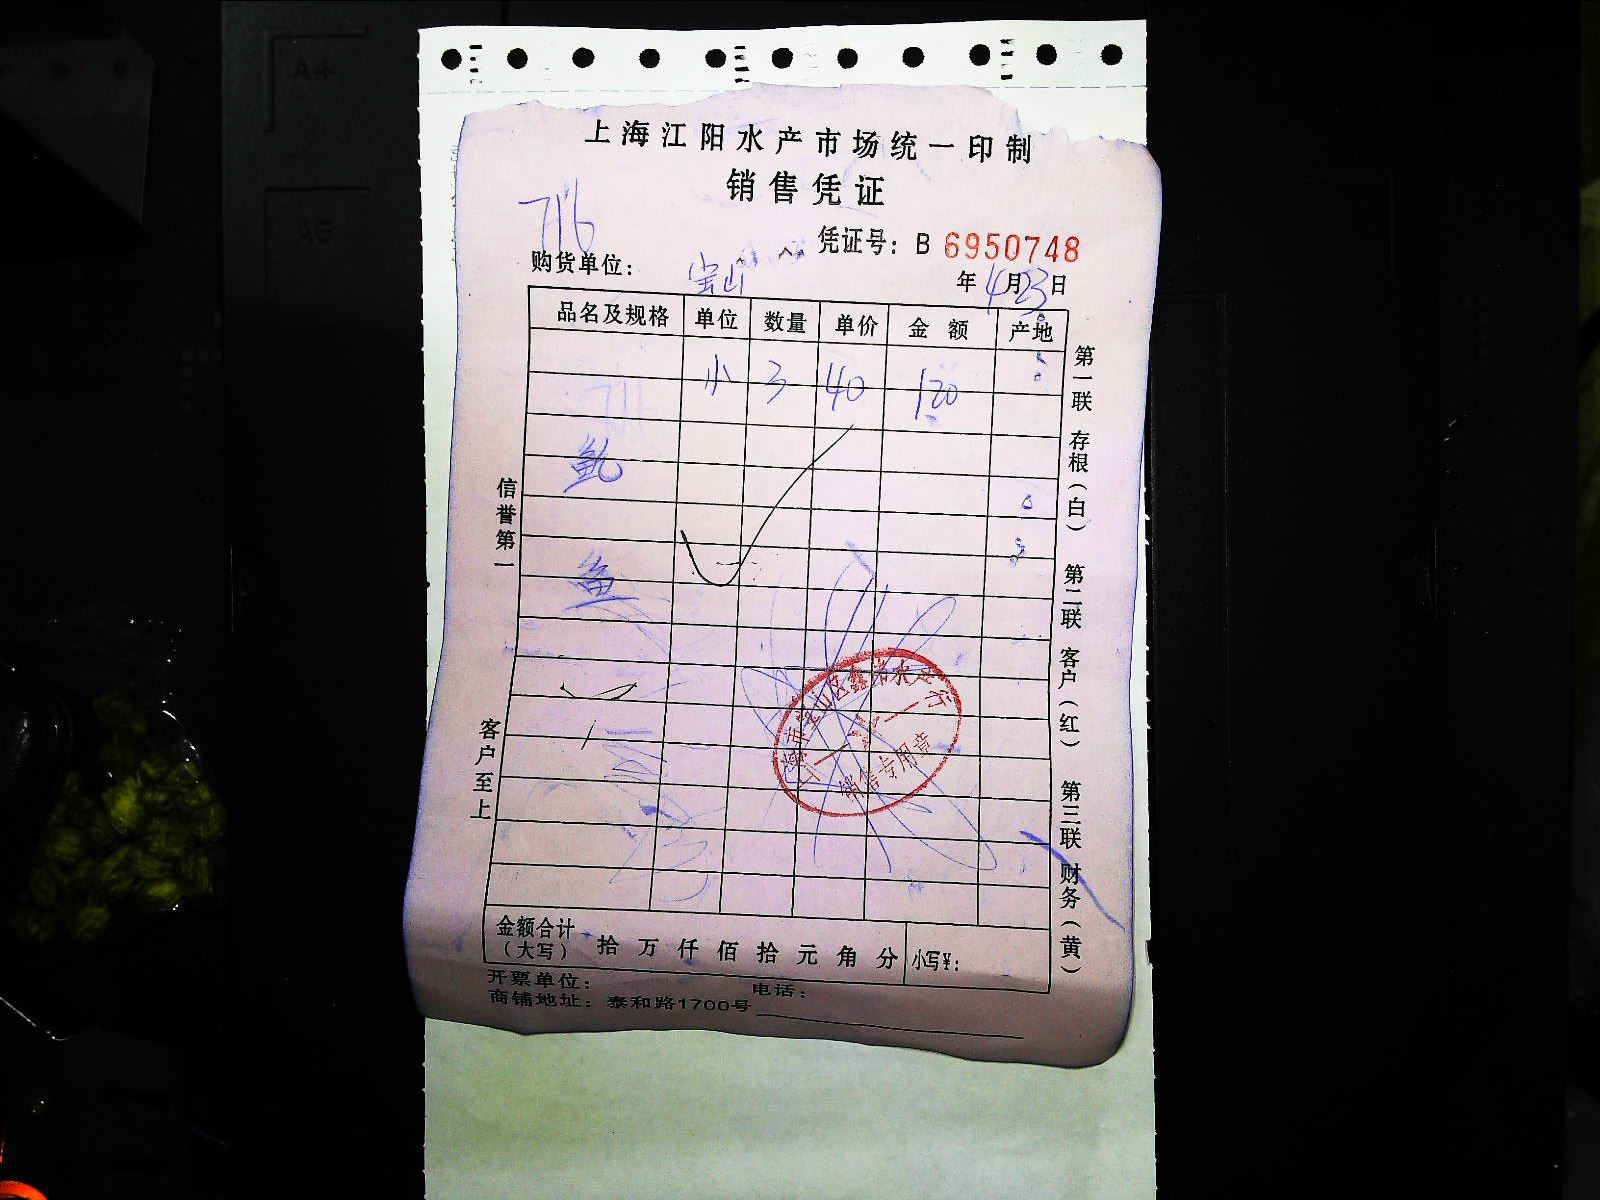 上海江阳水产市场统一印制
销售凭证
716
凭证号：B 6950748
购货单位：宝山
年4月23日
品名及规格 单位 数量 单价 金额 产地
小 3 40 120
鱼
信誉第一
客户至上
第一联 存根（白） 第二联 客户（红） 第三联 财务（黄）
销售专用章
金额合计（大写） 拾 万 仟 佰 拾 元 角 分 小写¥：
开票单位： 电话：
商铺地址：泰和路1700号
A4
A5